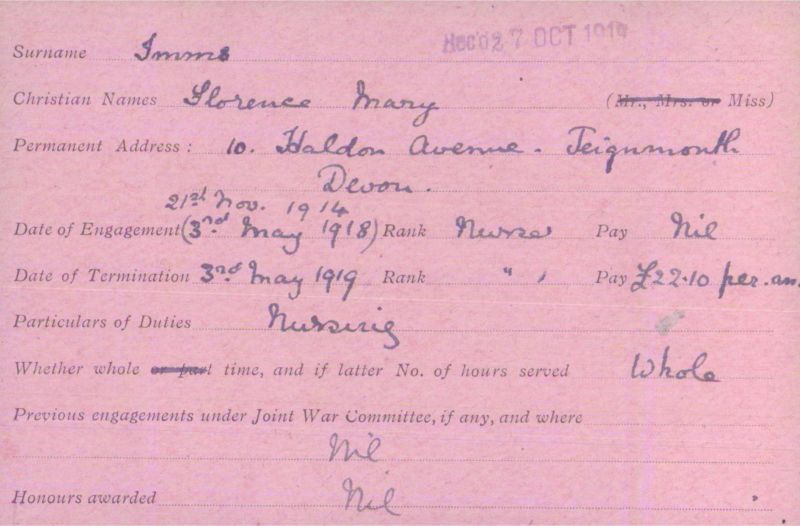 Rec'd 27 OCT 1919
Surname Imms
Christian Names Florence Mary (Mr., Mrs. or Miss)
Permanent Address : 10. Haldon Avenue. Teignmouth
Devon.
21st Nov. 1914
Date of Engagement (3rd May 1918) Rank Nurse Pay Nil
Date of Termination 3rd May 1919 Rank " , Pay £22.10 per. an.
Particulars of Duties Nursing
Whether whole or part time, and if latter No. of hours served Whole
Previous engagements under Joint War Committee, if any, and where
Nil
Honours awarded Nil